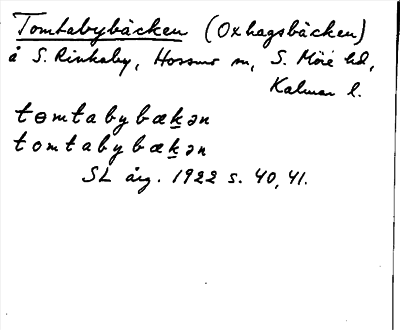 Tomtabybäcken (Oxhagsbäcken)
å S. Rinkaby, Hossmo sn, S. Möre hd,
Kalmar l.
tɵmtabybækən
tomtabybækən
SL årg. 1922 s. 40, 41.